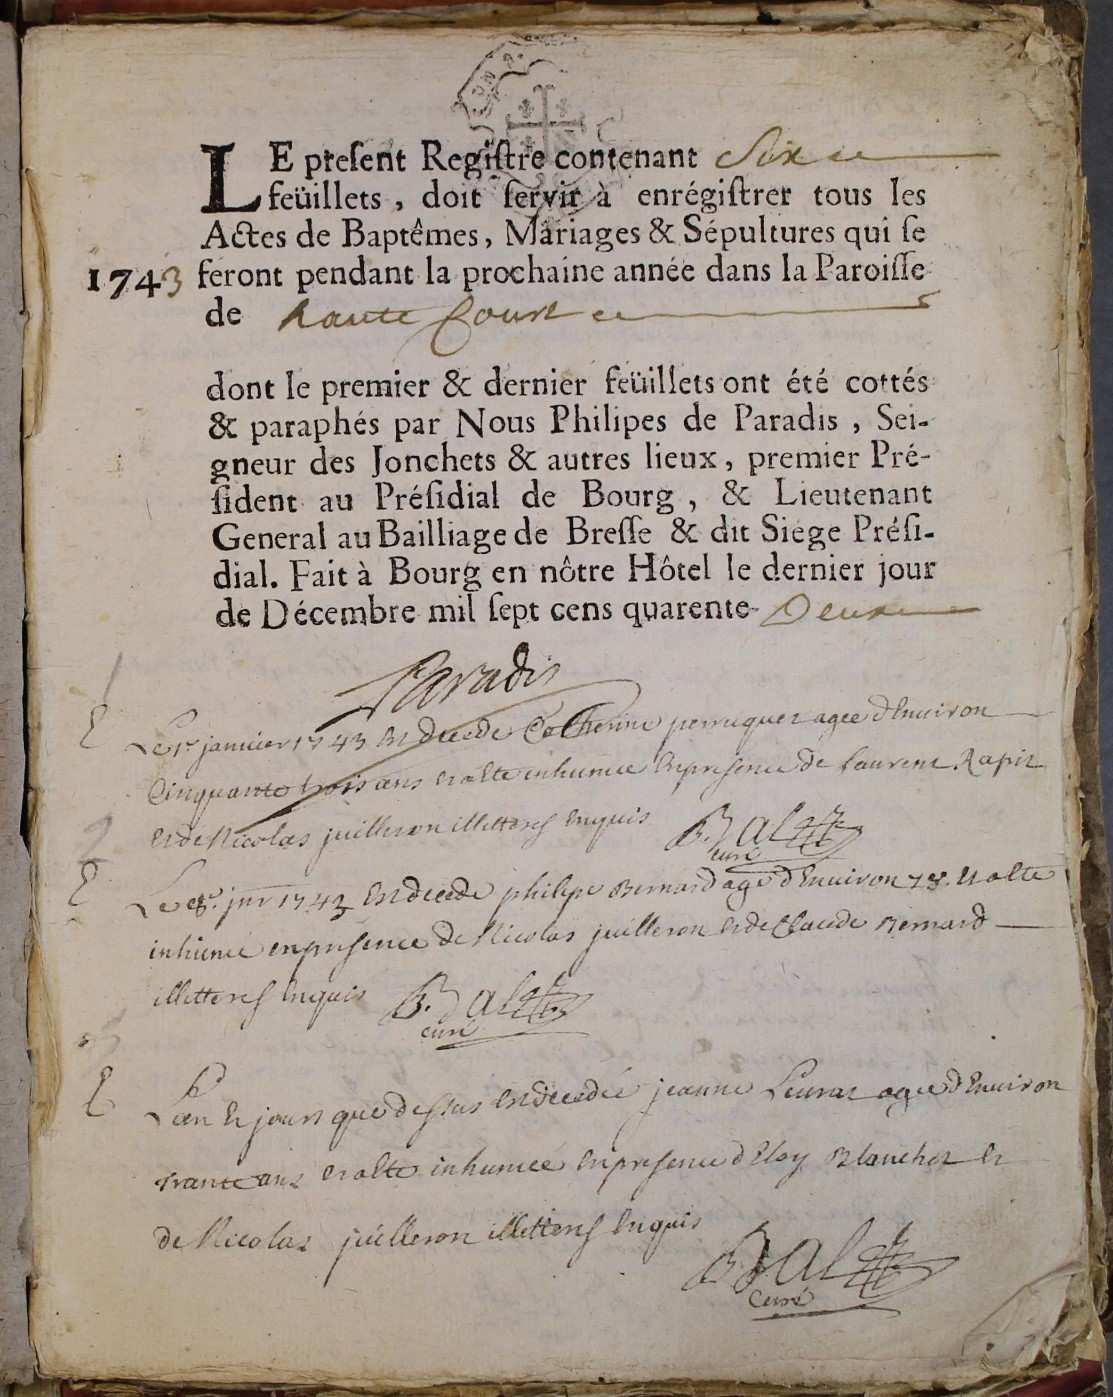 LE present Registre contenant Six
feüillets, doit servir à enrégistrer tous les
Actes de Baptêmes, Mariages & Sépultures qui se
1743 feront pendant la prochaine année dans la Paroisse
de haute Court
dont le premier & dernier feüillets ont été cottés
& paraphés par Nous Philipes de Paradis, Sei-
gneur des Jonchets & autres lieux, premier Pré-
sident au Présidial de Bourg, & Lieutenant
General au Bailliage de Bresse & dit Siége Prési-
dial. Fait à Bourg en nôtre Hôtel le dernier jour
de Décembre mil sept cens quarente-Deux
Paradis
Le 1r janvier 1743 Est decede perruquet agee d'Environ
Cinquante trois ans et a esté inhumee En presence de laurent Rapit
et de Nicolas juilleron illitterés Enquis B. Balet
curé
Le 8e jer 1743 Est decede philipe Bernard agé d'Environ 78. Et a esté
inhumé en presence de Nicolas juilleron et de Claude Bernard
illitterés Enquis B. Balet
curé
L'an Et jours que dessus Est decedée jeanne agee d'Environ
trante ans et a esté inhumée En presence d'Eloy Blanchet Et
de Nicolas juilleron illitterés Enquis B. Balet
Curé